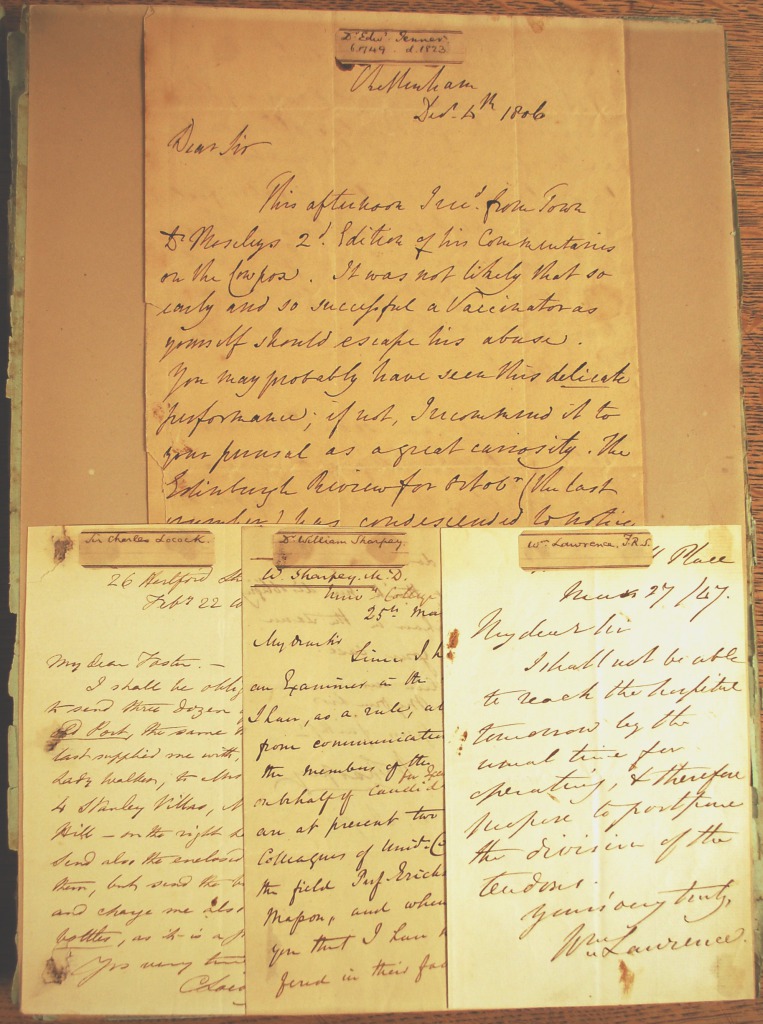 Dr Edwd Jenner
b. 1749. d. 1823
Cheltenham
Dec. 4th 1806
Dear Sir
This afternoon I recd. from Town
Dr Moseleys 2d. Edition of his Commentaries
on the Cowpox. It was not likely that so
early and so successful a Vaccinator as
yourself should escape his abuse.
You may probably have seen this delicate
performance; if not, I recommend it to
your perusal as a great curiosity. The
Edinburgh Review for Octobr (the last
number) has condescended to notice
Sir Charles Locock.
26 Hertford
Feby 22
My dear Foster. —
I shall be
to send three dozen
Old Port, the same
last supplied me with,
Lady Walker, to Mrs
4 Stanley Villas,
Hill — on the right
send also the enclosed
them, but send the
and charge me also
bottles, as it is a
Yrs very
Dr William Sharpey.
W. Sharpey, M.D.
College
25th
Since I
an Examiner in the
I have, as a rule,
from communication
the members of the
on behalf of candid
are at present two
Colleagues of
the field Prof Erich
and when
you that I have
fered in their
Wm Lawrence, F.R.S.
Place
27/47.
My dear Sir
I shall not be able
to reach the hospital
tomorrow by the
usual time for
operating, & therefore
propose to postpone
the division of the
tendons.
Yours very truly,
Wm Lawrence.